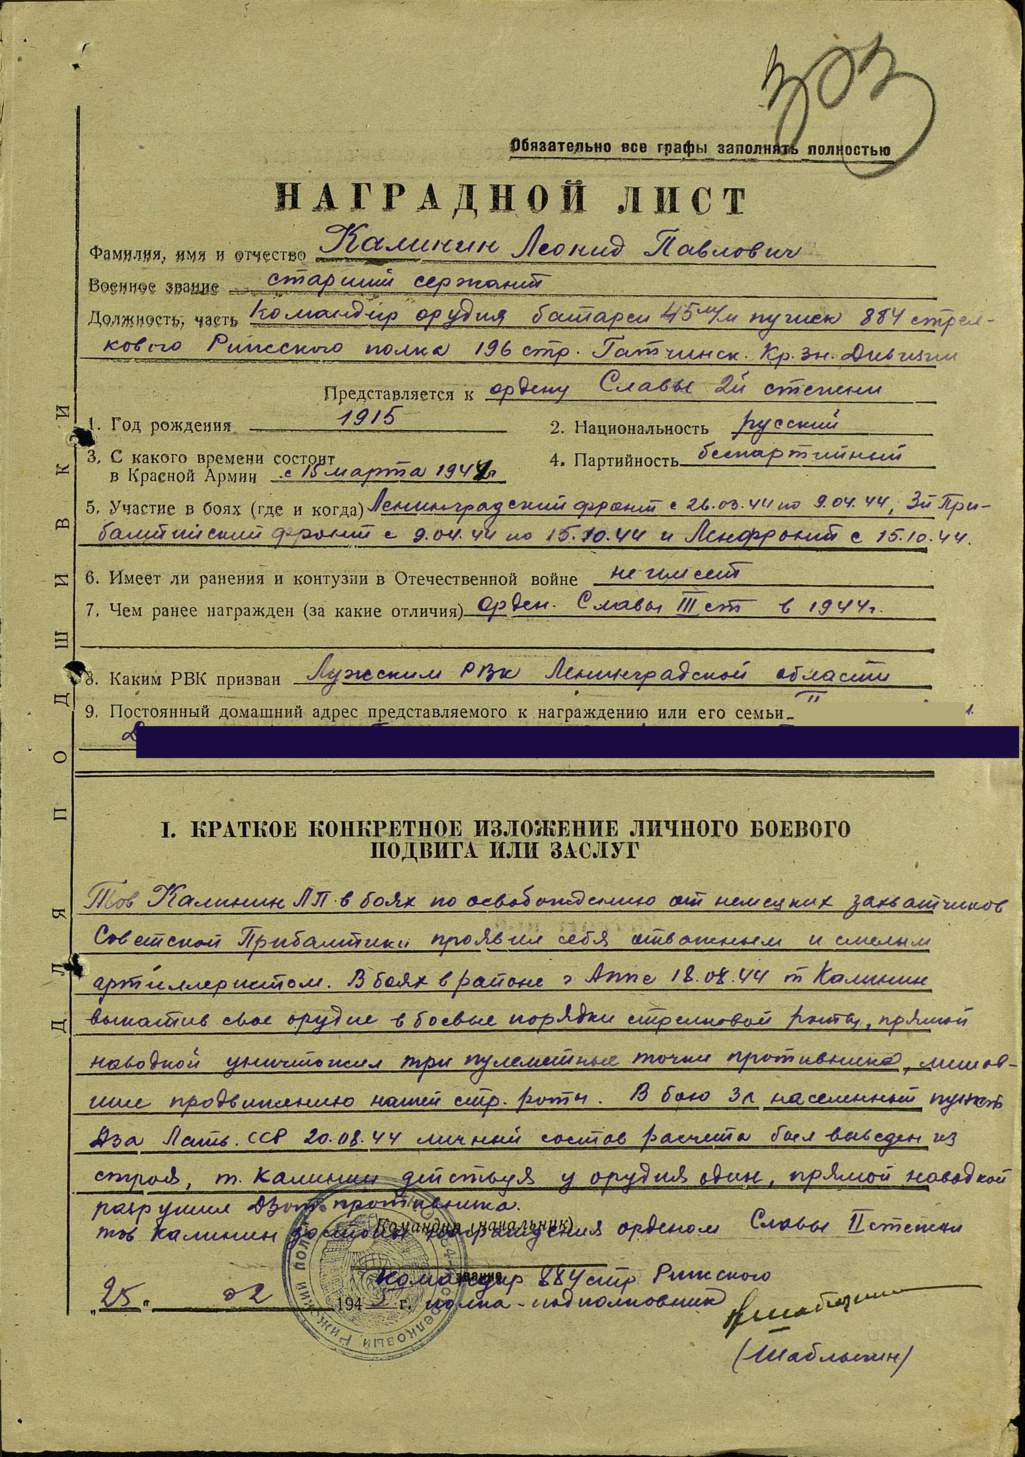 303
Обязательно все графы заполнять полностью
НАГРАДНОЙ ЛИСТ
Фамилия, имя и отчество Калинин Леонид Павлович
Военное звание старший сержант
Должность, часть Командир орудия батареи 45 м/м пушек 884 стрел-
кового Рижского полка 196 стр. Гатчинск. Кр. Зн. Дивизии
Представляется к ордену Славы 2й степени
1. Год рождения 1915
2. Национальность русский
3. С какого времени состоит
в Красной Армии с 15 марта 1944 г
4. Партийность беспартийный
5. Участие в боях (где и когда) Ленинградский фронт с 26.03.44 по 9.04.44, 3й При-
балтийский фронт с 9.04.44 по 15.10.44 и Ленфронт с 15.10.44.
6. Имеет ли ранения и контузии в Отечественной войне не имеет
7. Чем ранее награжден (за какие отличия) Орден. Славы III ст в 1944 г.
8. Каким РВК призван Лужским РВК Ленинградской области
9. Постоянный домашний адрес представляемого к награждению или его семьи
ДЛЯ ПОДШИВКИ
I. КРАТКОЕ КОНКРЕТНОЕ ИЗЛОЖЕНИЕ ЛИЧНОГО БОЕВОГО
ПОДВИГА ИЛИ ЗАСЛУГ
Тов Калинин Л П в боях по освобождению от немецких захватчиков
Советской Прибалтики проявил себя отважным и смелым
артиллеристом. В боях в районе г Апе 18.08.44 т Калинин
выкатив свое орудие в боевые порядки стрелковой роты, прямой
наводкой уничтожил три пулеметные точки противника, мешав-
шие продвижению нашей стр. роты. В бою за населенный пункт
Дза Латв. ССР 20.08.44 личный состав расчета был выведен из
строя, т. Калинин действуя у орудия один, прямой наводкой
разрушил Дзот противника.
тов Калинин достоин награждения орденом Славы II степени
Командир (начальник)
звание
командир 884 стр Рижского
„25" 02 1945 г. полка - подполковник
(Шаблыкин)